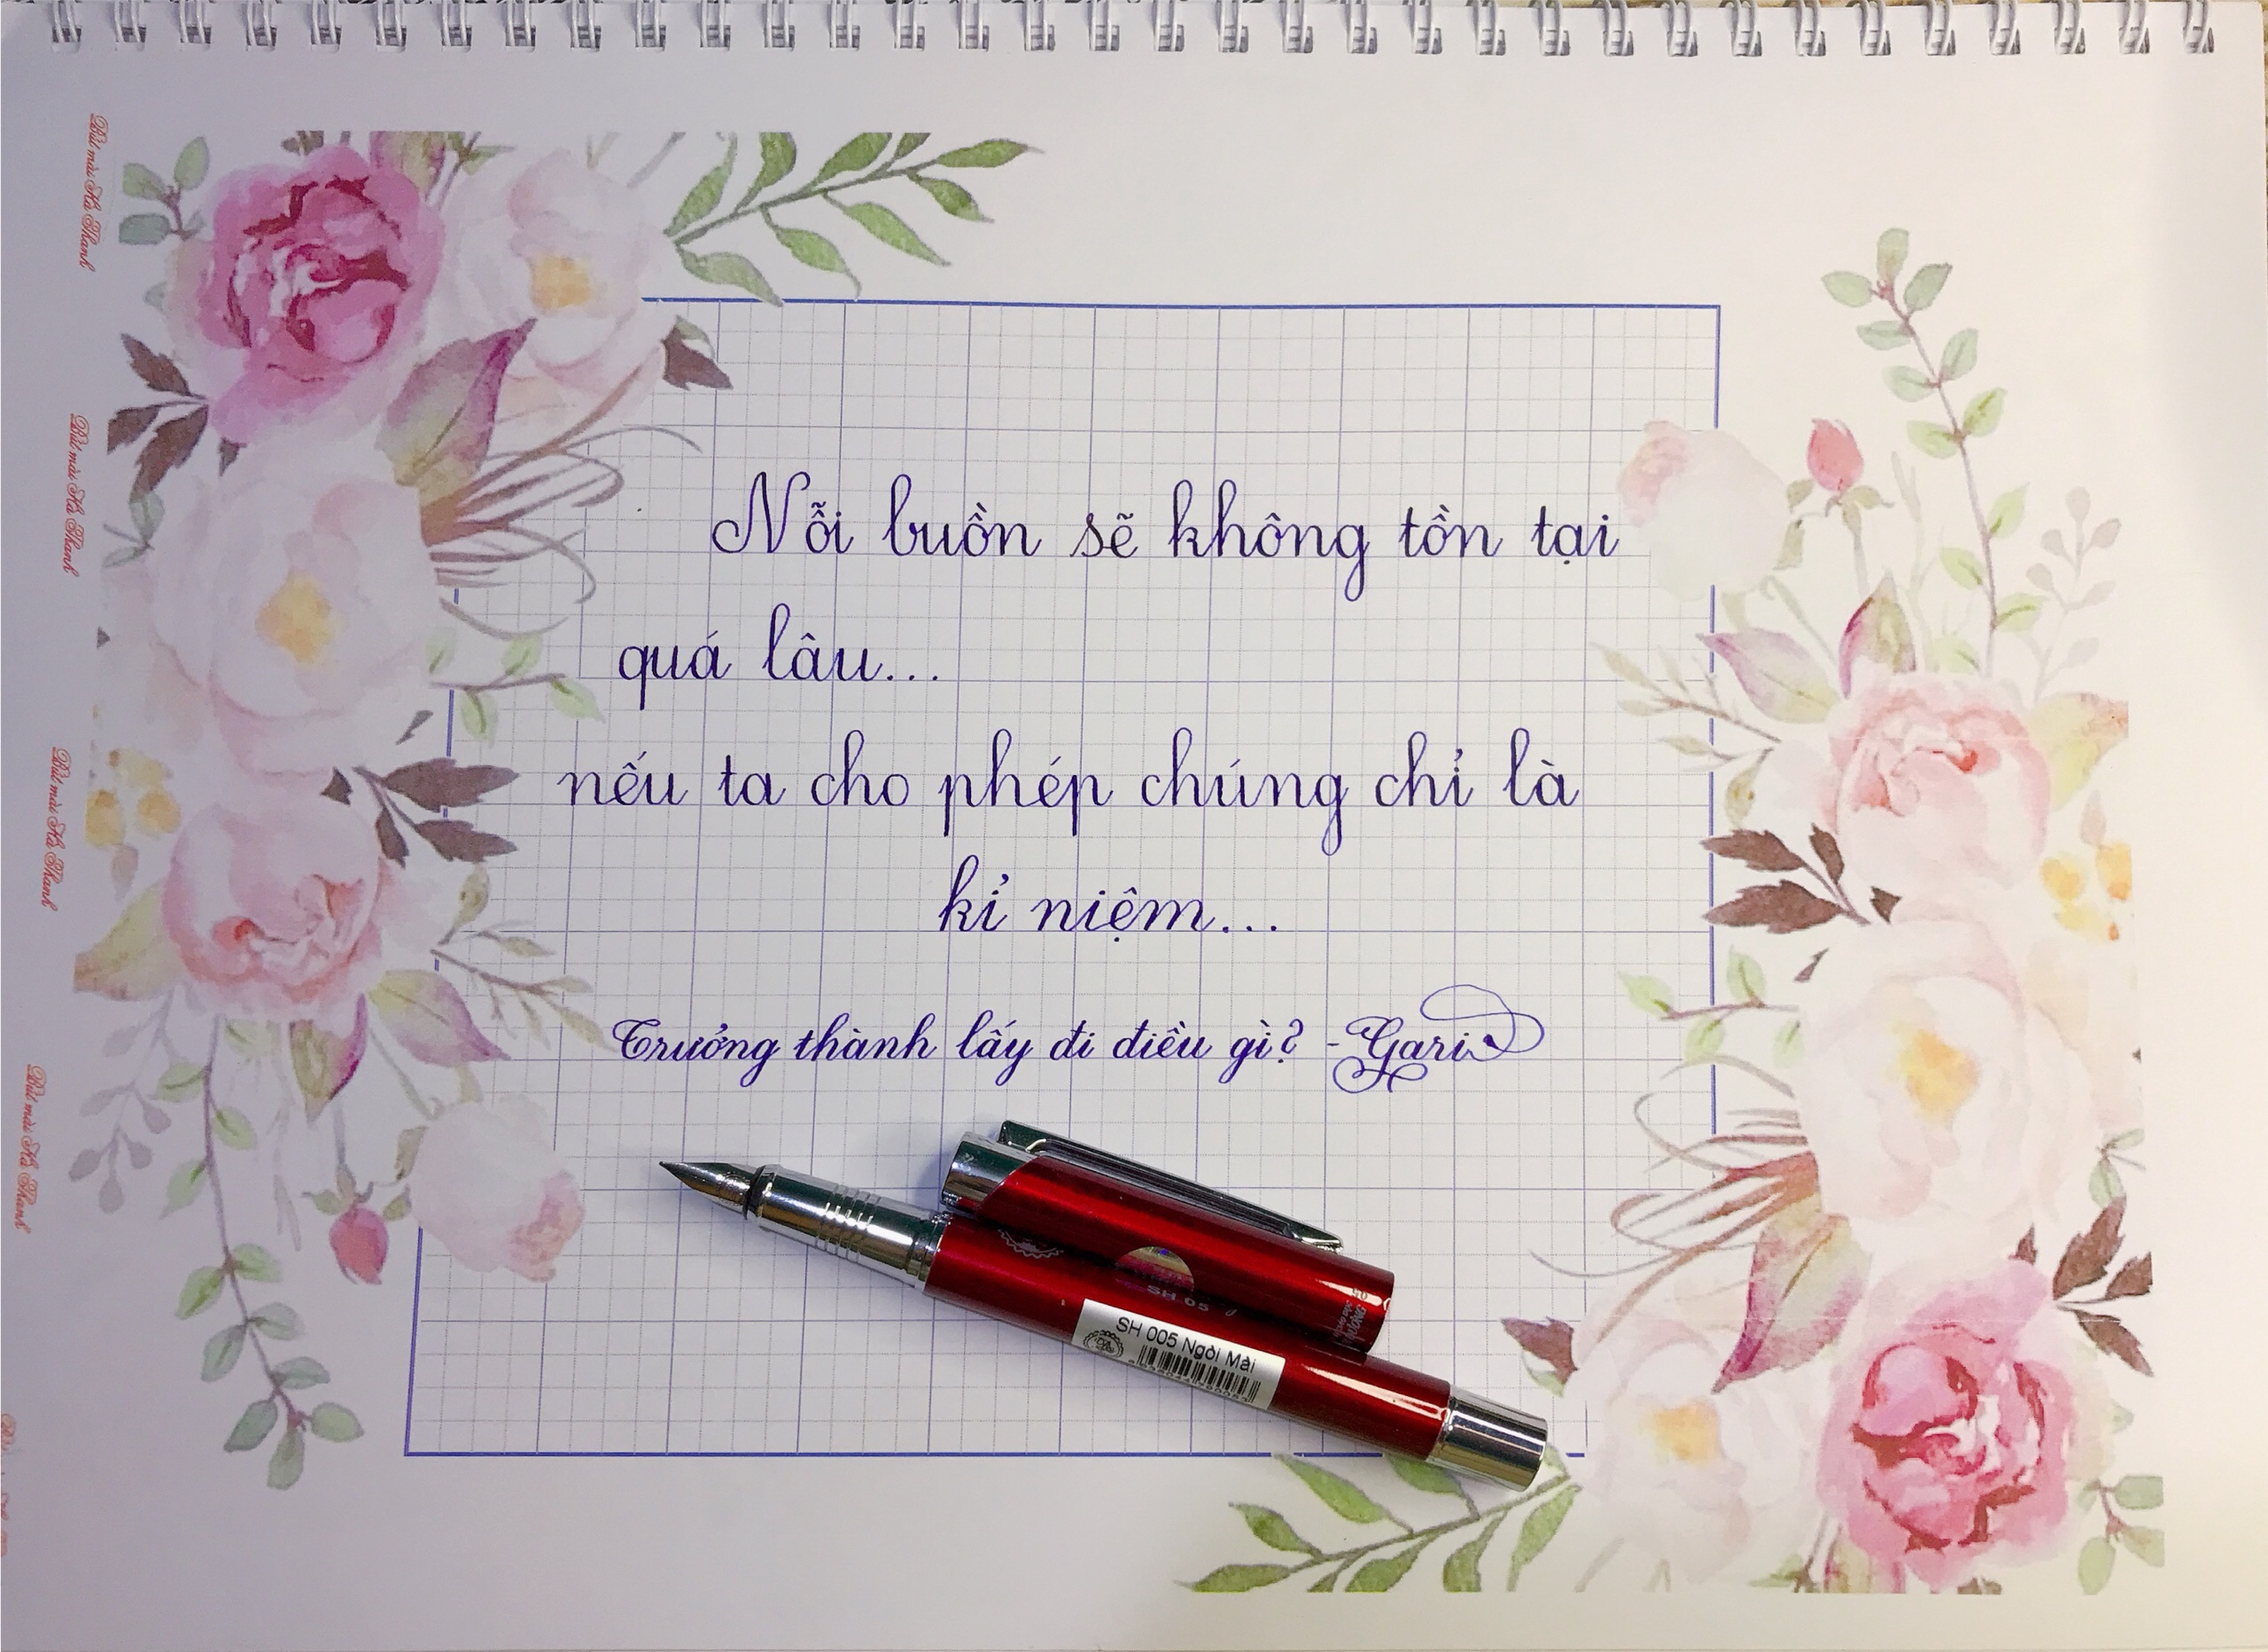 Nỗi buồn sẽ không tồn tại
quá lâu...
nếu ta cho phép chúng chỉ là
kỉ niệm...
Trưởng thành lấy đi điều gì? - Gari
SH 05
SH 005 Ngòi Mài
Bút mài Hà Thanh
Bút mài Hà Thanh
Bút mài Hà Thanh
Bút mài Hà Thanh